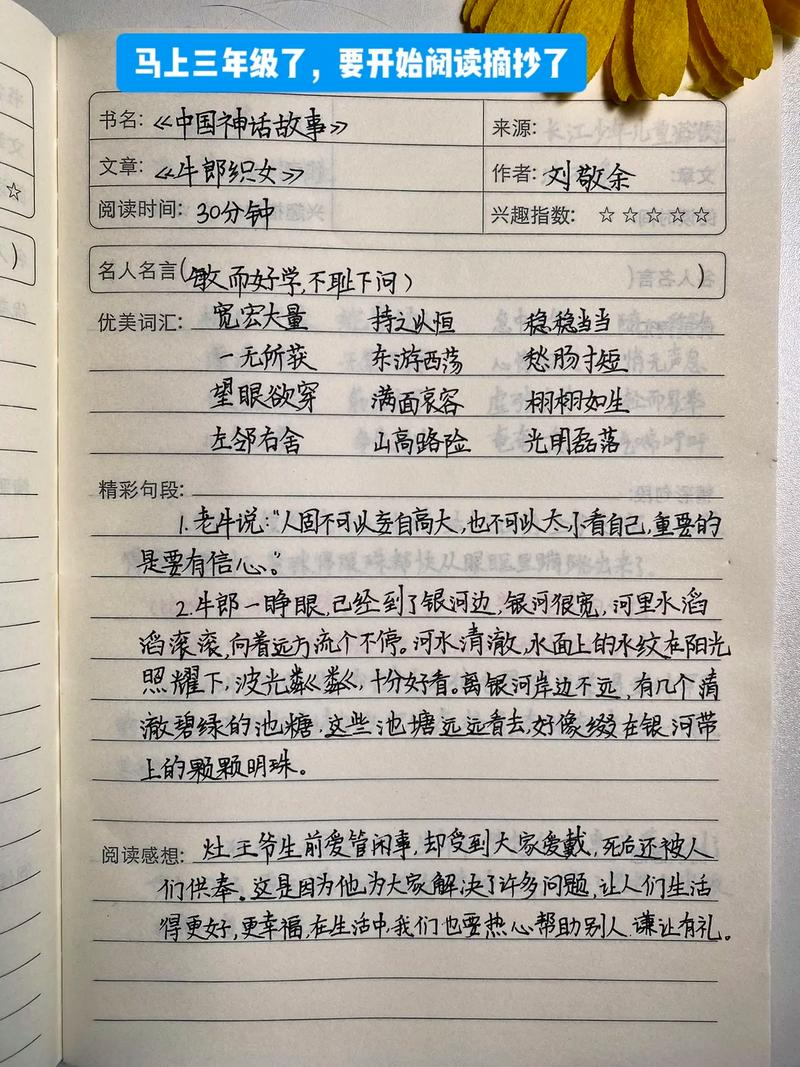 马上三年级了，要开始阅读摘抄了
书名：《中国神话故事》 来源：长江少年儿童
文章：《牛郎织女》 作者：刘敬余
阅读时间：30分钟 兴趣指数：☆☆☆☆☆
名人名言（敏而好学，不耻下问））
优美词汇：宽宏大量 持之以恒 稳稳当当
一无所获 东游西荡 愁肠寸短
望眼欲穿 满面哀容 栩栩如生
左邻右舍 山高路险 光明磊落
精彩句段：
1.老牛说："人固不可以妄自高大，也不可以太小看自己，重要的
是要有信心。"
2.牛郎一睁眼，已经到了银河边，银河很宽，河里水滔
滔滚滚，向着远方流个不停。河水清澈，水面上的水纹在阳光
照耀下，波光粼粼，十分好看。离银河岸边不远，有几个清
澈碧绿的池糖，这些池塘远远看去，好像缀在银河带
上的颗颗明珠。
阅读感想：灶王爷生前爱管闲事，却受到大家爱戴，死后还被人
们供奉。这是因为他为大家解决了许多问题，让人们生活
得更好，更幸福，在生活中，我们也要热心帮助别人，谦让有礼。